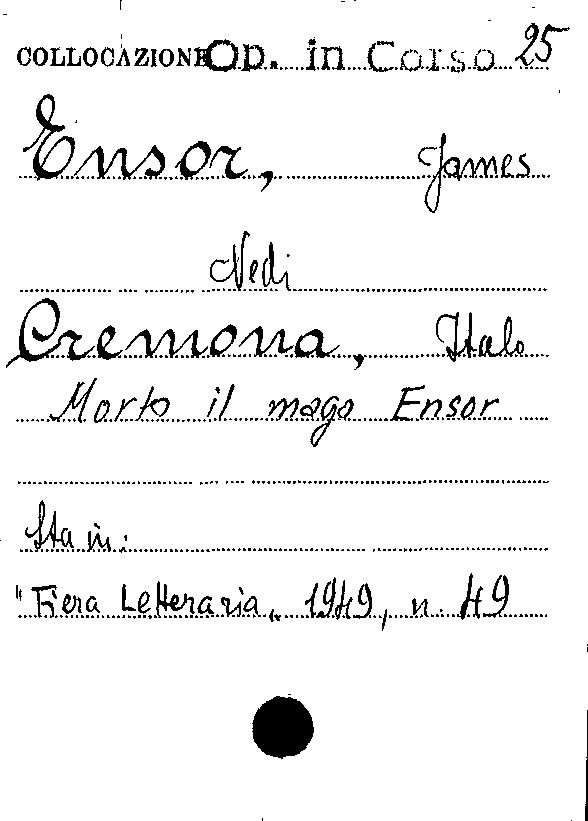 COLLOCAZIONE Op. in Corso 25
Ensor, James
Vedi
Cremona, Italo
Morto il mago Ensor
Sta in:
"Fiera Letteraria„ 1949, n. 49